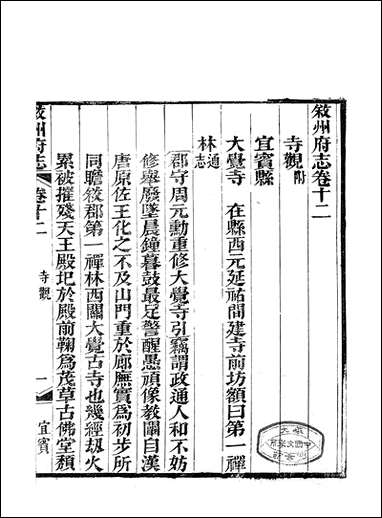 敘州府志卷十二
寺觀附
宜賓縣
大覺寺 在縣西元延祐間建寺前坊額曰第一禪
林通志
郡守周元勳重修大覺寺引竊謂政通人和不妨
修舉廢墜晨鐘暮鼓最足警醒愚頑像教闢自漢
唐原佐王化之不及山門重於廊廡實為初步所
同瞻敘郡第一禪林西關大覺古寺也幾經刼火
累被摧殘天王殿圯於殿前鞠為茂草古佛堂頽
敘州府志
卷十二
寺觀
一
宜賓